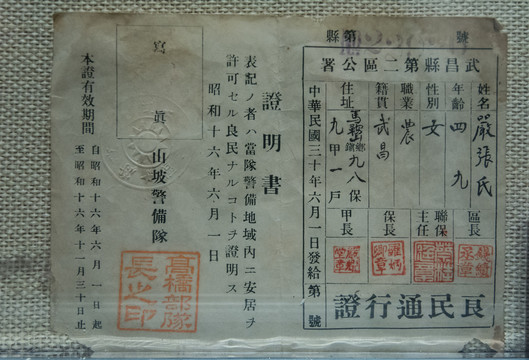 縣第
號
武昌縣第二區公署
姓名 嚴張氏
年齡 四九
性別 女
職業 農
籍貫 武昌
住址 鄉鎮 九八保
九甲一戶
區長
聯保主任
保長
甲長
中華民國三十年六月一日發給第
號
良民通行證
證明書
表記ノ者ハ當隊警備地域內ニ安居ヲ
許可セル良民ナルコトヲ證明ス
昭和十六年六月一日
寫真
山坡警備隊
高橋部隊長之印
本證有效期間
自昭和十六年六月一日起
至昭和十六年十一月三十日止